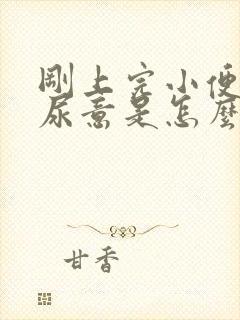 剛上完小便
尿意是怎麼
甘香